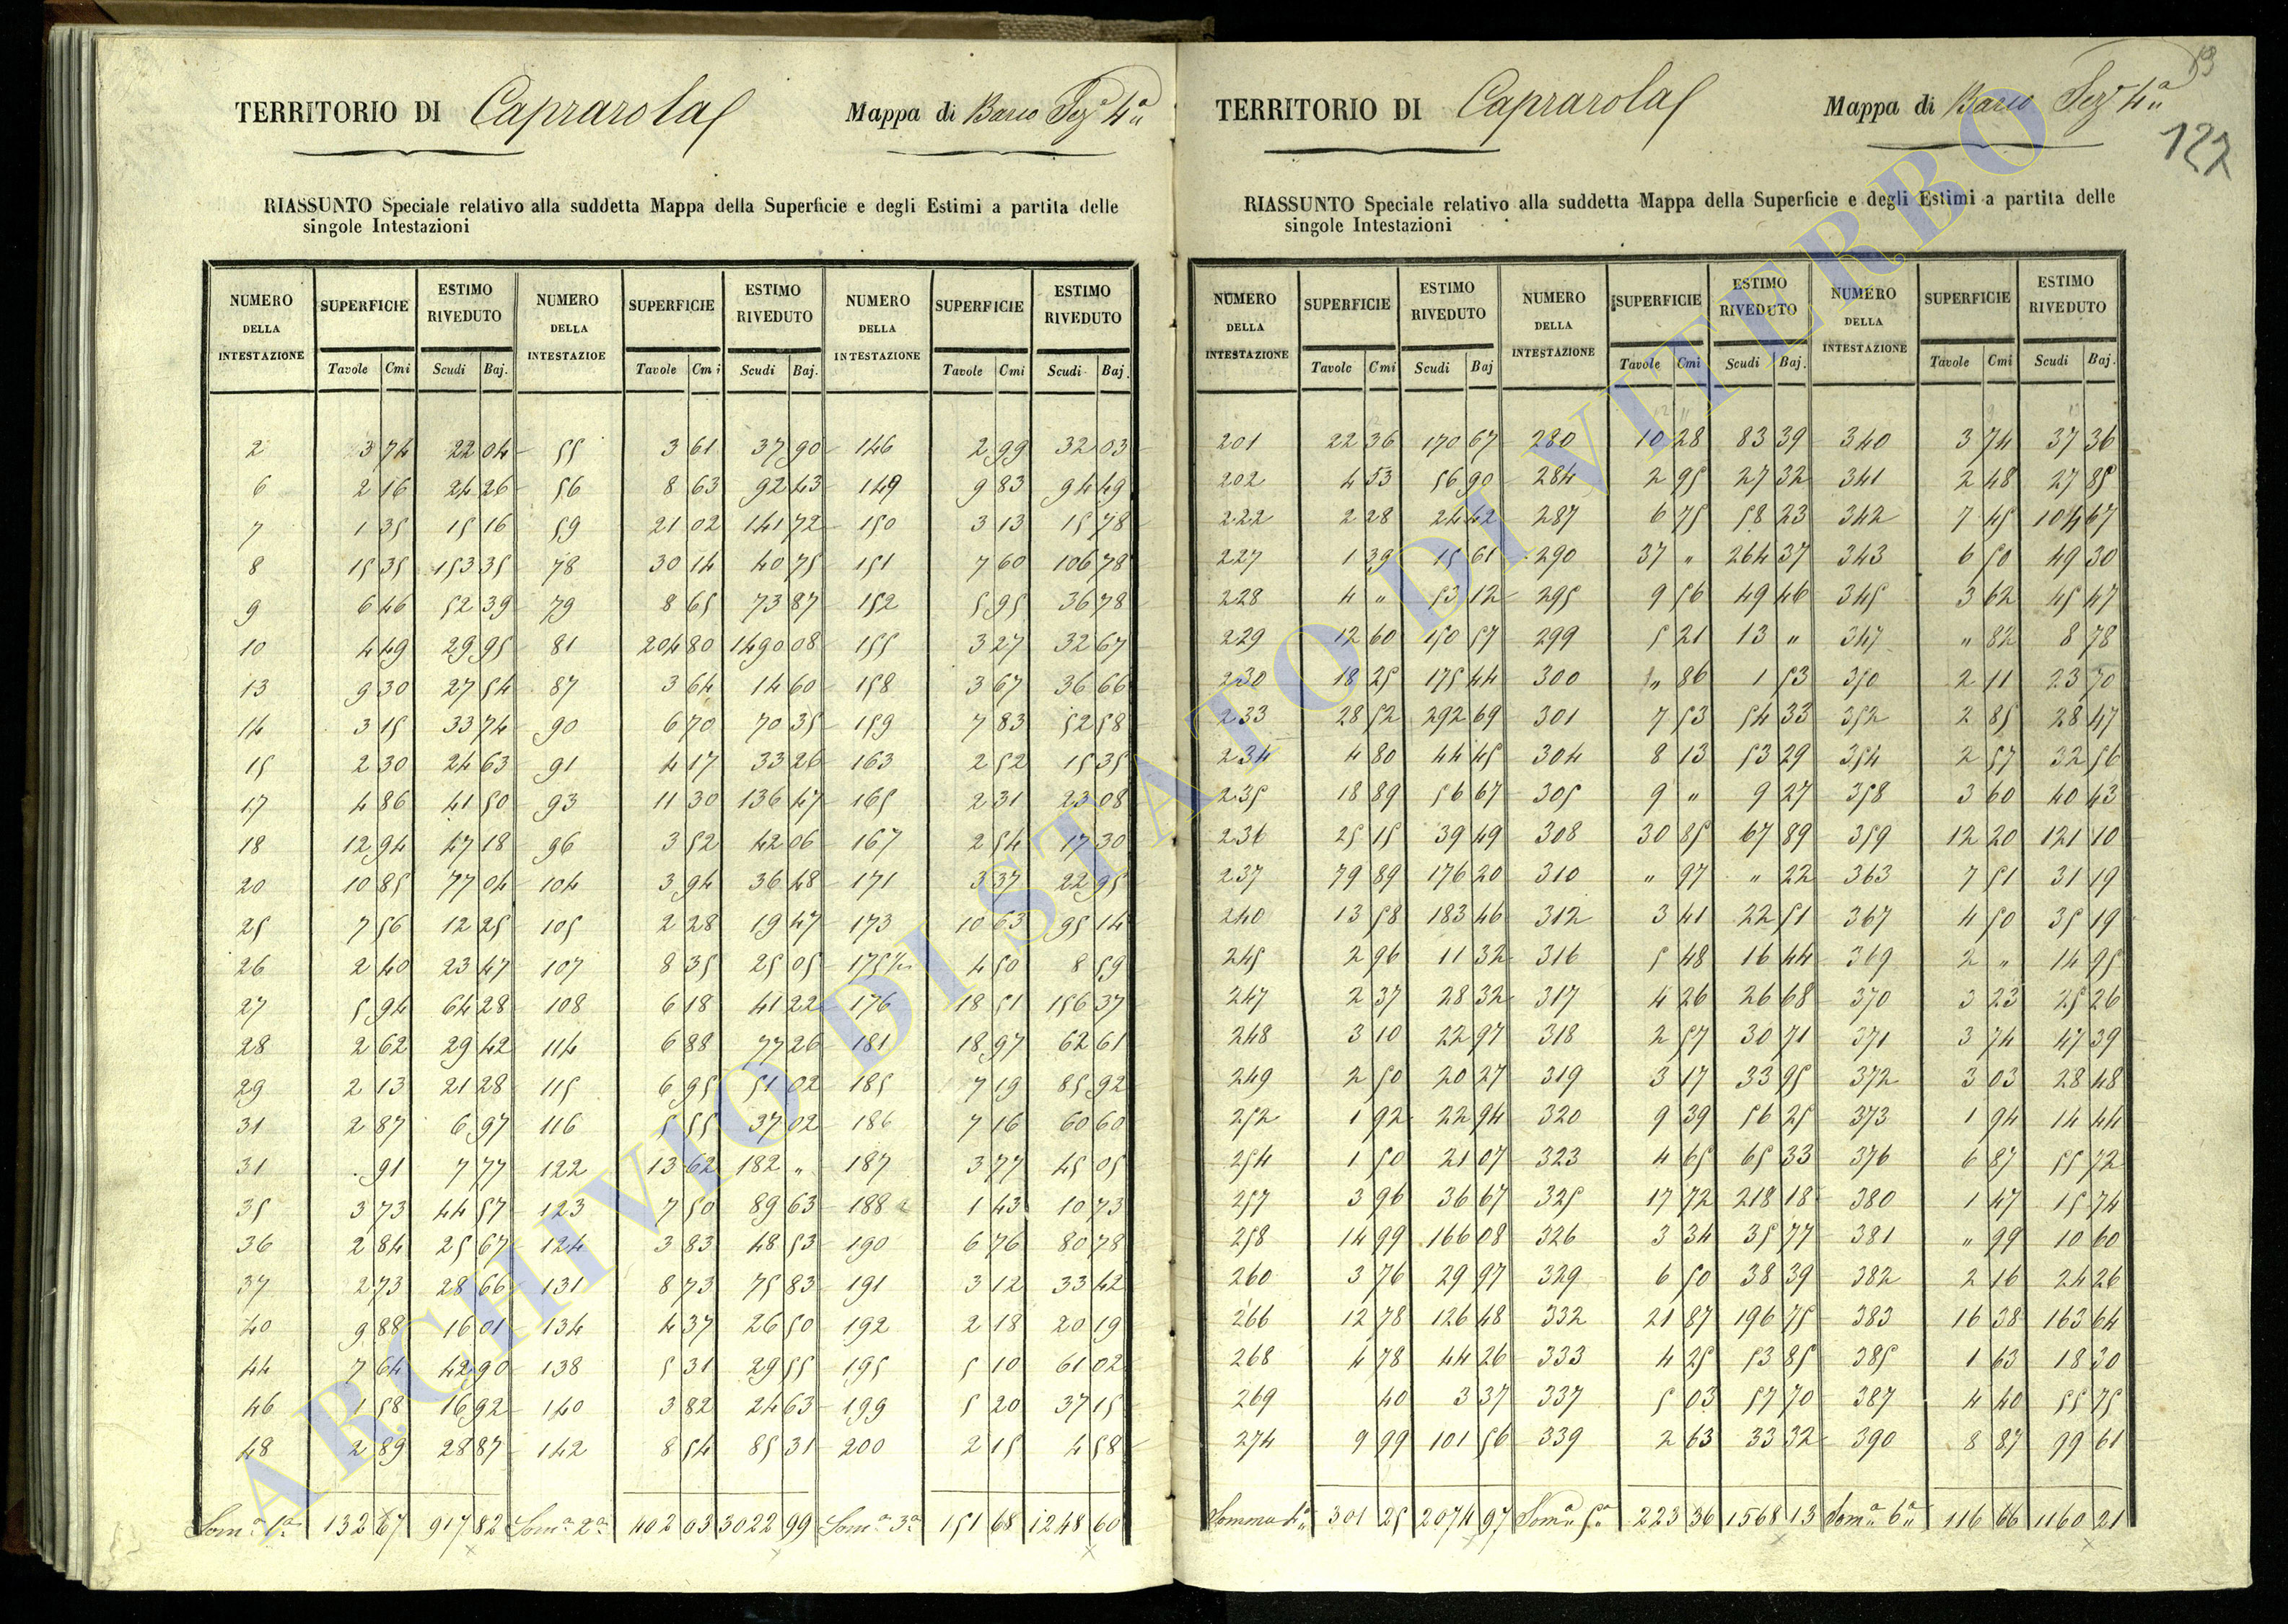 TERRITORIO DI Caprarola Mappa di Barco Sez.e 4a
RIASSUNTO Speciale relativo alla suddetta Mappa della Superficie e degli Estimi a partita delle
singole Intestazioni
NUMERO DELLA INTESTAZIONE SUPERFICIE ESTIMO RIVEDUTO NUMERO DELLA INTESTAZIOE SUPERFICIE ESTIMO RIVEDUTO NUMERO DELLA INTESTAZIONE SUPERFICIE ESTIMO RIVEDUTO
Tavole Cmi Scudi Baj. Tavole Cmi Scudi Baj. Tavole Cmi Scudi Baj.
2 3 74 22 04 55 3 61 37 90 146 2 99 32 03
6 2 16 24 26 56 8 63 92 43 149 9 83 94 49
7 1 35 15 16 59 21 02 141 72 150 3 13 15 78
8 15 35 153 35 78 30 14 40 75 151 7 60 106 78
9 6 46 52 39 79 8 65 73 87 152 5 95 36 78
10 4 49 29 95 81 204 80 1490 08 155 3 27 32 67
13 9 30 27 54 87 3 64 14 60 158 3 67 36 66
14 3 15 33 74 90 6 70 70 35 159 7 83 52 58
15 2 30 24 63 91 4 17 33 26 163 2 52 15 35
17 4 86 41 50 93 11 30 136 47 165 2 31 23 08
18 12 94 47 18 96 3 52 42 06 167 2 54 17 30
20 10 85 77 04 104 3 94 36 48 171 3 37 22 95
25 7 56 12 25 105 2 28 19 47 173 10 63 95 14
26 2 40 23 47 107 8 35 25 05 175 4 50 8 59
27 5 94 64 28 108 6 18 41 22 176 18 51 156 37
28 2 62 29 42 114 6 88 77 26 181 18 97 62 61
29 2 13 21 28 115 6 95 51 02 185 7 19 85 92
31 2 87 6 97 116 5 55 37 02 186 7 16 60 60
31 . 91 7 77 122 13 62 182 " 187 3 77 45 05
35 3 73 44 57 123 7 50 89 63 188 1 43 10 73
36 2 84 25 67 124 3 83 48 53 190 6 76 80 78
37 2 73 28 66 131 8 73 75 83 191 3 12 33 42
40 9 88 16 01 134 4 37 26 50 192 2 18 20 19
44 7 64 42 90 138 5 31 29 55 195 5 10 61 02
46 1 58 16 92 140 3 82 24 63 199 5 20 37 15
48 2 89 28 87 142 8 54 85 31 200 2 15 4 58
Som.a 1a 132 67 917 82 Som.a 2a 402 03 3022 99 Som.a 3a 151 68 1248 60
TERRITORIO DI Caprarola Mappa di Barco Sez.e 4a
122
RIASSUNTO Speciale relativo alla suddetta Mappa della Superficie e degli Estimi a partita delle
singole Intestazioni
NUMERO DELLA INTESTAZIONE SUPERFICIE ESTIMO RIVEDUTO NUMERO DELLA INTESTAZIONE SUPERFICIE ESTIMO RIVEDUTO NUMERO DELLA INTESTAZIONE SUPERFICIE ESTIMO RIVEDUTO
Tavole Cmi Scudi Baj Tavole Cmi Scudi Baj. Tavole Cmi Scudi Baj.
201 22 36 170 67 280 10 28 83 39 340 3 74 37 36
202 4 53 56 90 284 2 95 27 32 341 2 48 27 85
222 2 28 24 42 287 6 75 58 23 342 7 45 104 67
227 1 39 15 61 290 37 " 264 37 343 6 50 49 30
228 4 " 53 12 295 9 56 49 46 345 3 62 45 47
229 12 60 150 57 299 5 21 13 " 347 " 82 8 78
230 18 25 175 44 300 " 86 1 53 350 2 11 23 70
233 28 52 292 69 301 7 53 54 33 352 2 85 28 47
234 4 80 44 45 304 8 13 53 29 354 2 57 32 56
235 18 89 56 67 305 9 " 9 27 358 3 60 40 43
236 25 15 39 49 308 30 85 67 89 359 12 20 121 10
237 79 89 176 20 310 " 97 " 22 363 7 51 31 19
240 13 58 183 46 312 3 41 22 51 367 4 50 35 19
245 2 96 11 32 316 5 48 16 44 369 2 " 14 95
247 2 37 28 32 317 4 26 26 68 370 3 23 25 26
248 3 10 22 97 318 2 57 30 71 371 3 74 47 39
249 2 50 20 27 319 3 17 33 95 372 3 03 28 48
252 1 92 22 94 320 9 39 56 25 373 1 94 14 44
254 1 50 21 07 323 4 65 65 33 376 6 87 55 72
257 3 96 36 67 325 17 72 218 18 380 1 47 15 74
258 14 99 166 08 326 3 34 35 77 381 " 99 10 60
260 3 76 29 97 329 6 50 38 39 382 2 16 24 26
266 12 78 126 48 332 21 87 196 75 383 16 38 163 64
268 4 78 44 26 333 4 25 53 85 385 1 63 18 30
269 40 3 37 337 5 03 57 70 387 4 40 55 75
274 9 99 101 56 339 2 63 33 32 390 8 87 99 61
Somma 4a 301 25 2074 97 Som.a 5a 223 36 1568 13 Som.a 6a 116 66 1160 21
ARCHIVIO DI STATO DI VITERBO